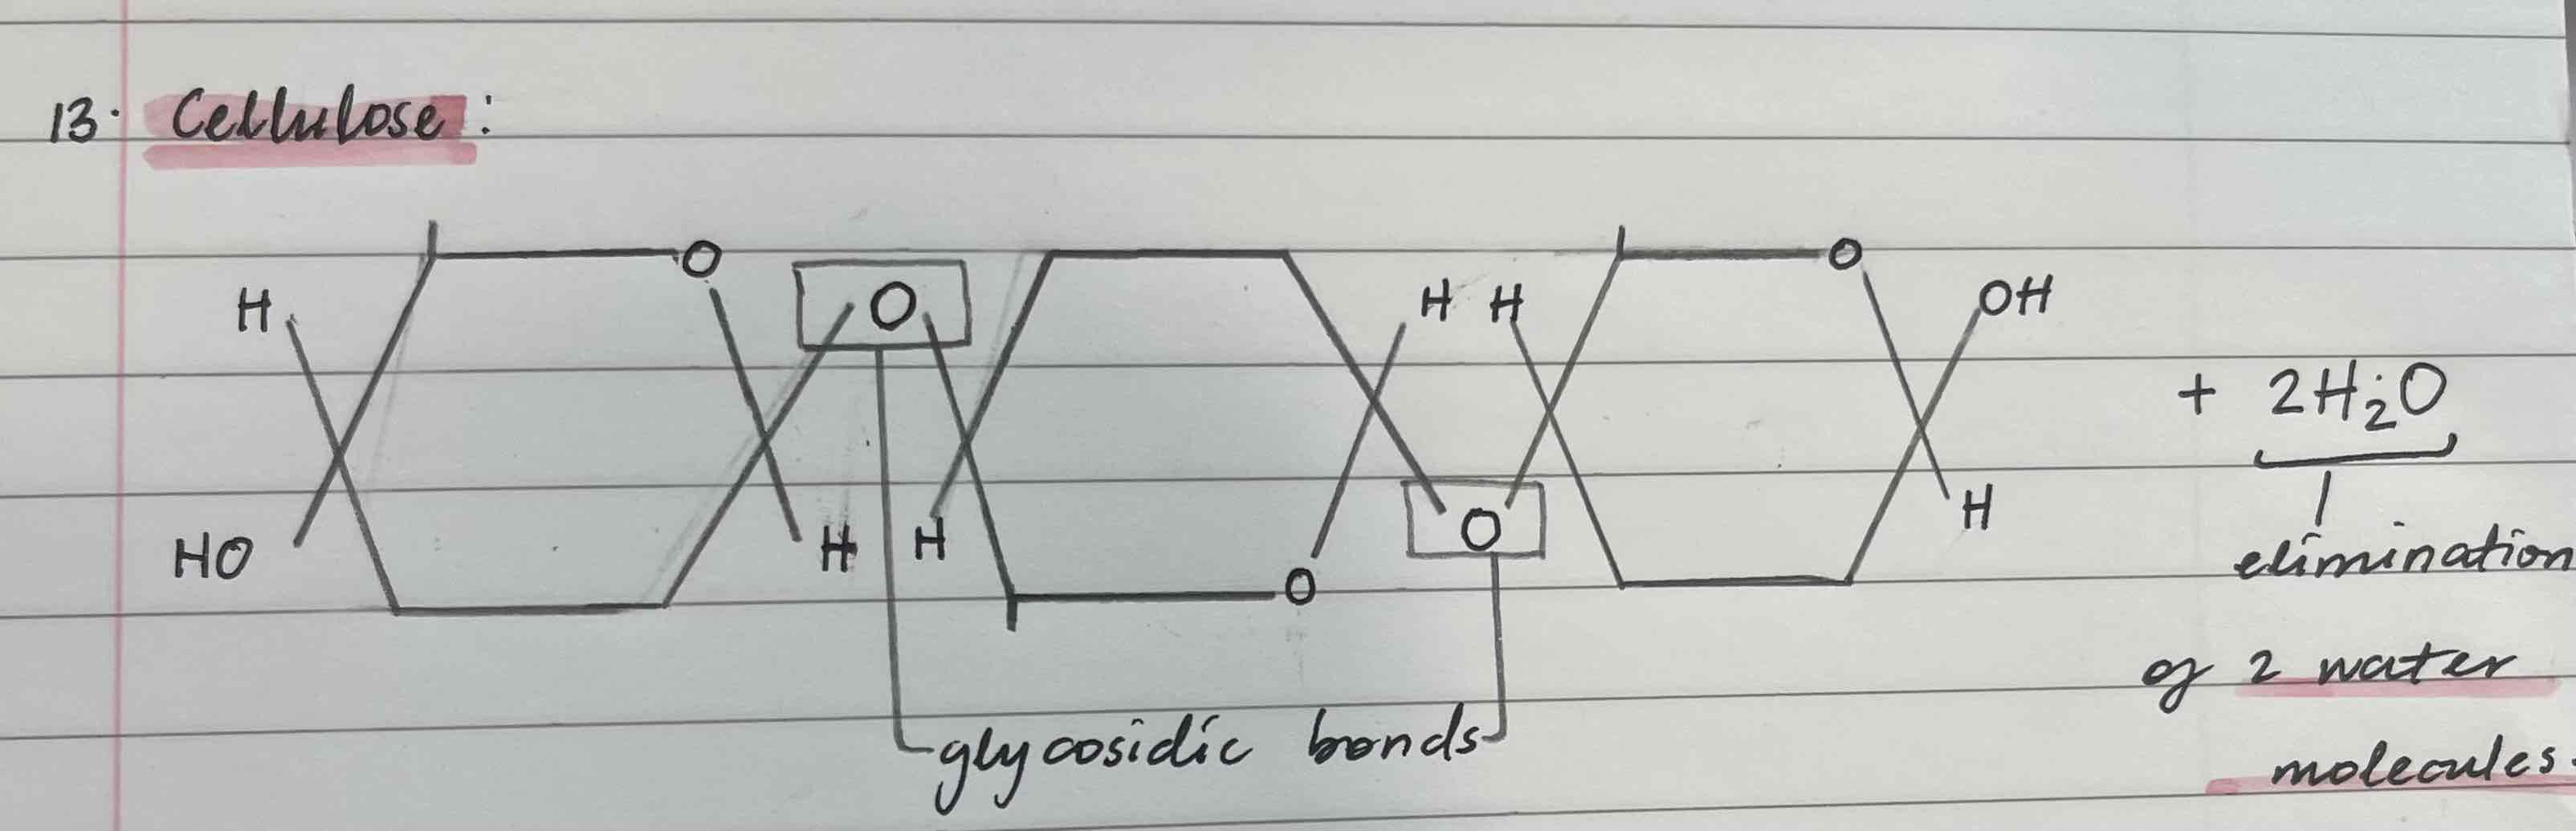 13. Cellulose:
O O O
H O H H OH
+ 2H2O
HO H H O H
O elimination
of 2 water
glycosidic bonds
molecules.